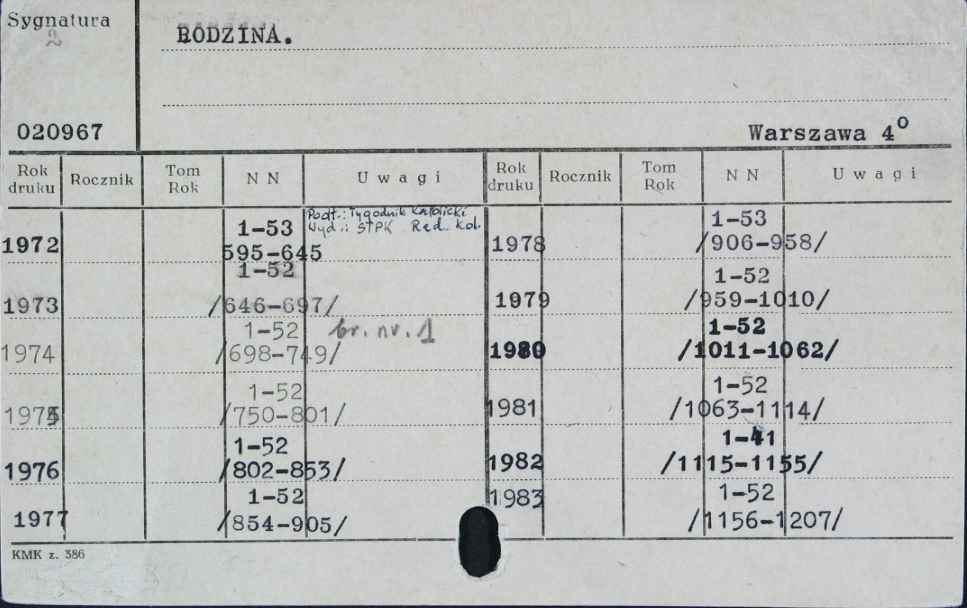 Sygnatura
2
RODZINA.
020967
Warszawa 4°
Rok druku Rocznik Tom Rok NN Uwagi Rok druku Rocznik Tom Rok NN Uwagi
1972 1-53 Podt.: Tygodnik Katolicki
595-645 Wyd.: STPK Red. Kol.
1-52
1973 /646-697/
1-52 br. nr. 1
1974 /698-749/
1-52
1975 /750-801/
1-52
1976 /802-853/
1-52
1977 /854-905/
1-53
1978 /906-958/
1-52
1979 /959-1010/
1-52
1980 /1011-1062/
1-52
1981 /1063-1114/
1-41
1982 /1115-1155/
1983 1-52
/1156-1207/
KMK z. 386